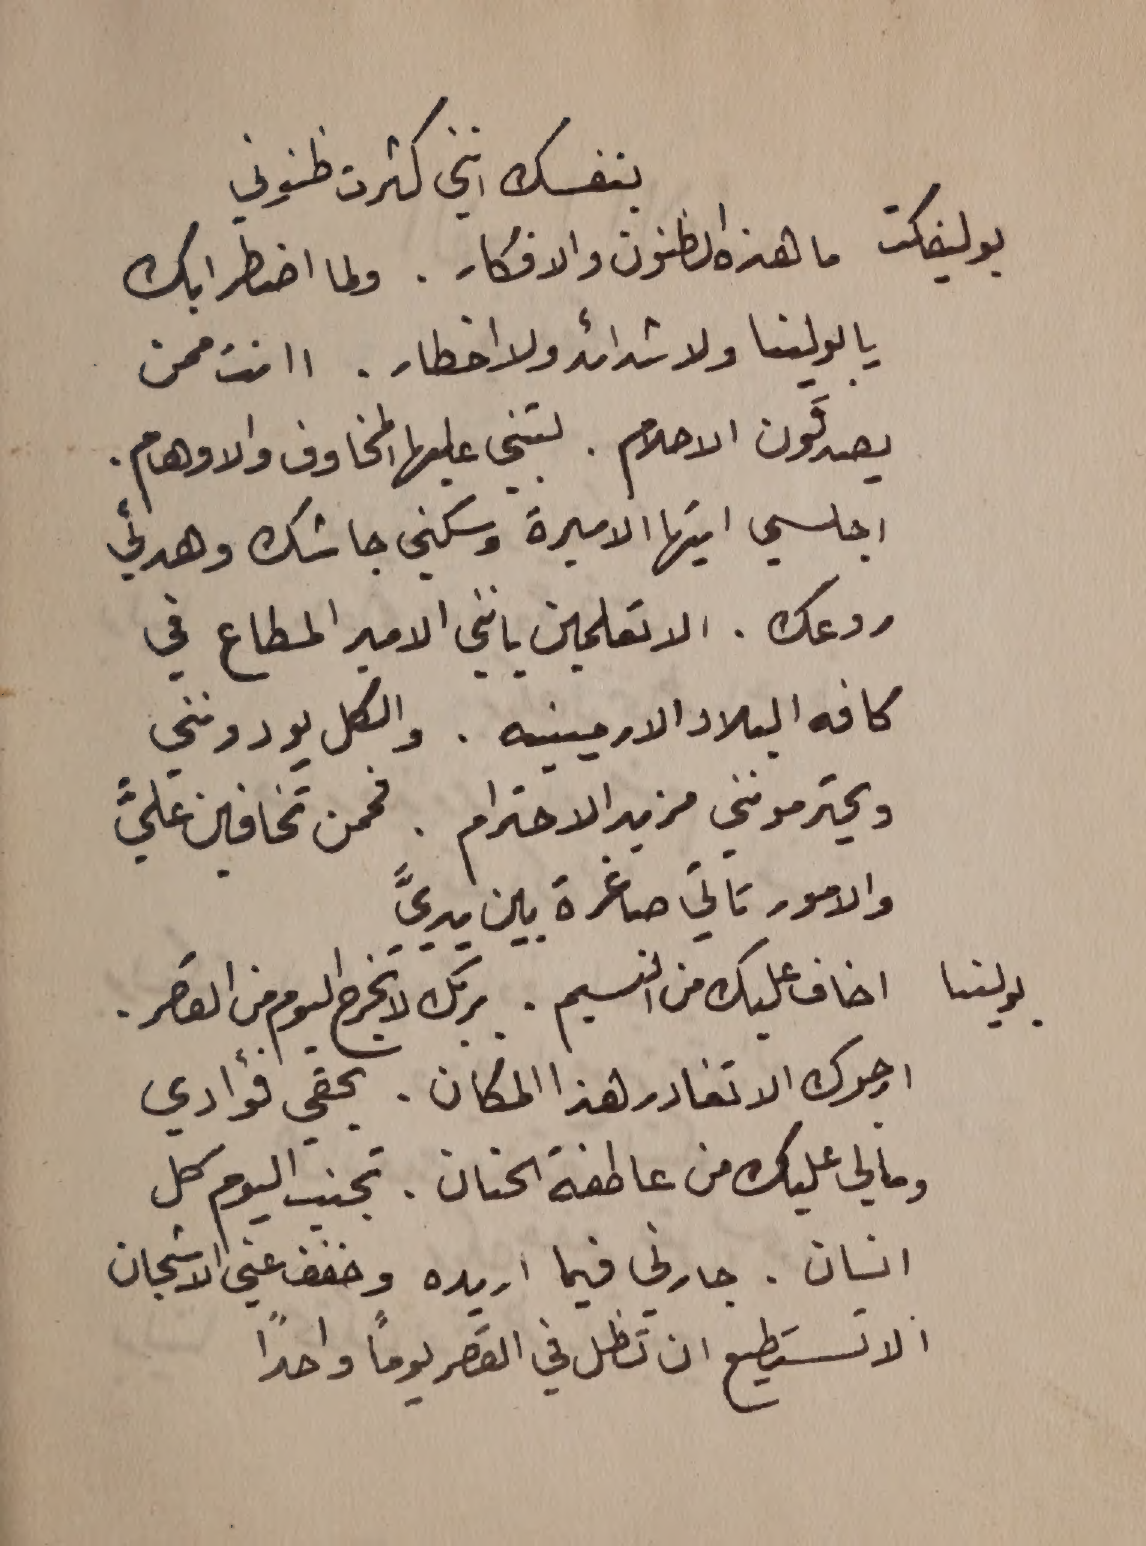 بنفسك انني كثرت ظنوني
بوليفكت ما هذه الظنون والافكار . ولما اضطرابك
يا بولينا ولا شدائد ولا اخطار . اانت ممن
يصدقون الاحلام . لتبني عليها المخاوف والاوهام .
اجلسي ايتها الاميرة وسكني جاشك وهدئي
روعك . الا تعلمين بانني الامير المطاع في
كافه البلاد الارمينيه . والكل يودونني
ويحترمونني مزيد الاحترام . فممن تخافين عليَّ
والامور تاتي صاغرة بين يديَّ
بولينا اخاف عليك من النسيم . بربك لا تخرج اليوم من القصر .
ارجوك الا تغادر هذا المكان . بحقي فؤادي
ومالي عليك من عاطفة الحنان . تجنب اليوم كل
انسان . جارني فيما اريده وخفف عني الاشجان
الا تستطيع ان تظل في القصر يوماً واحداً